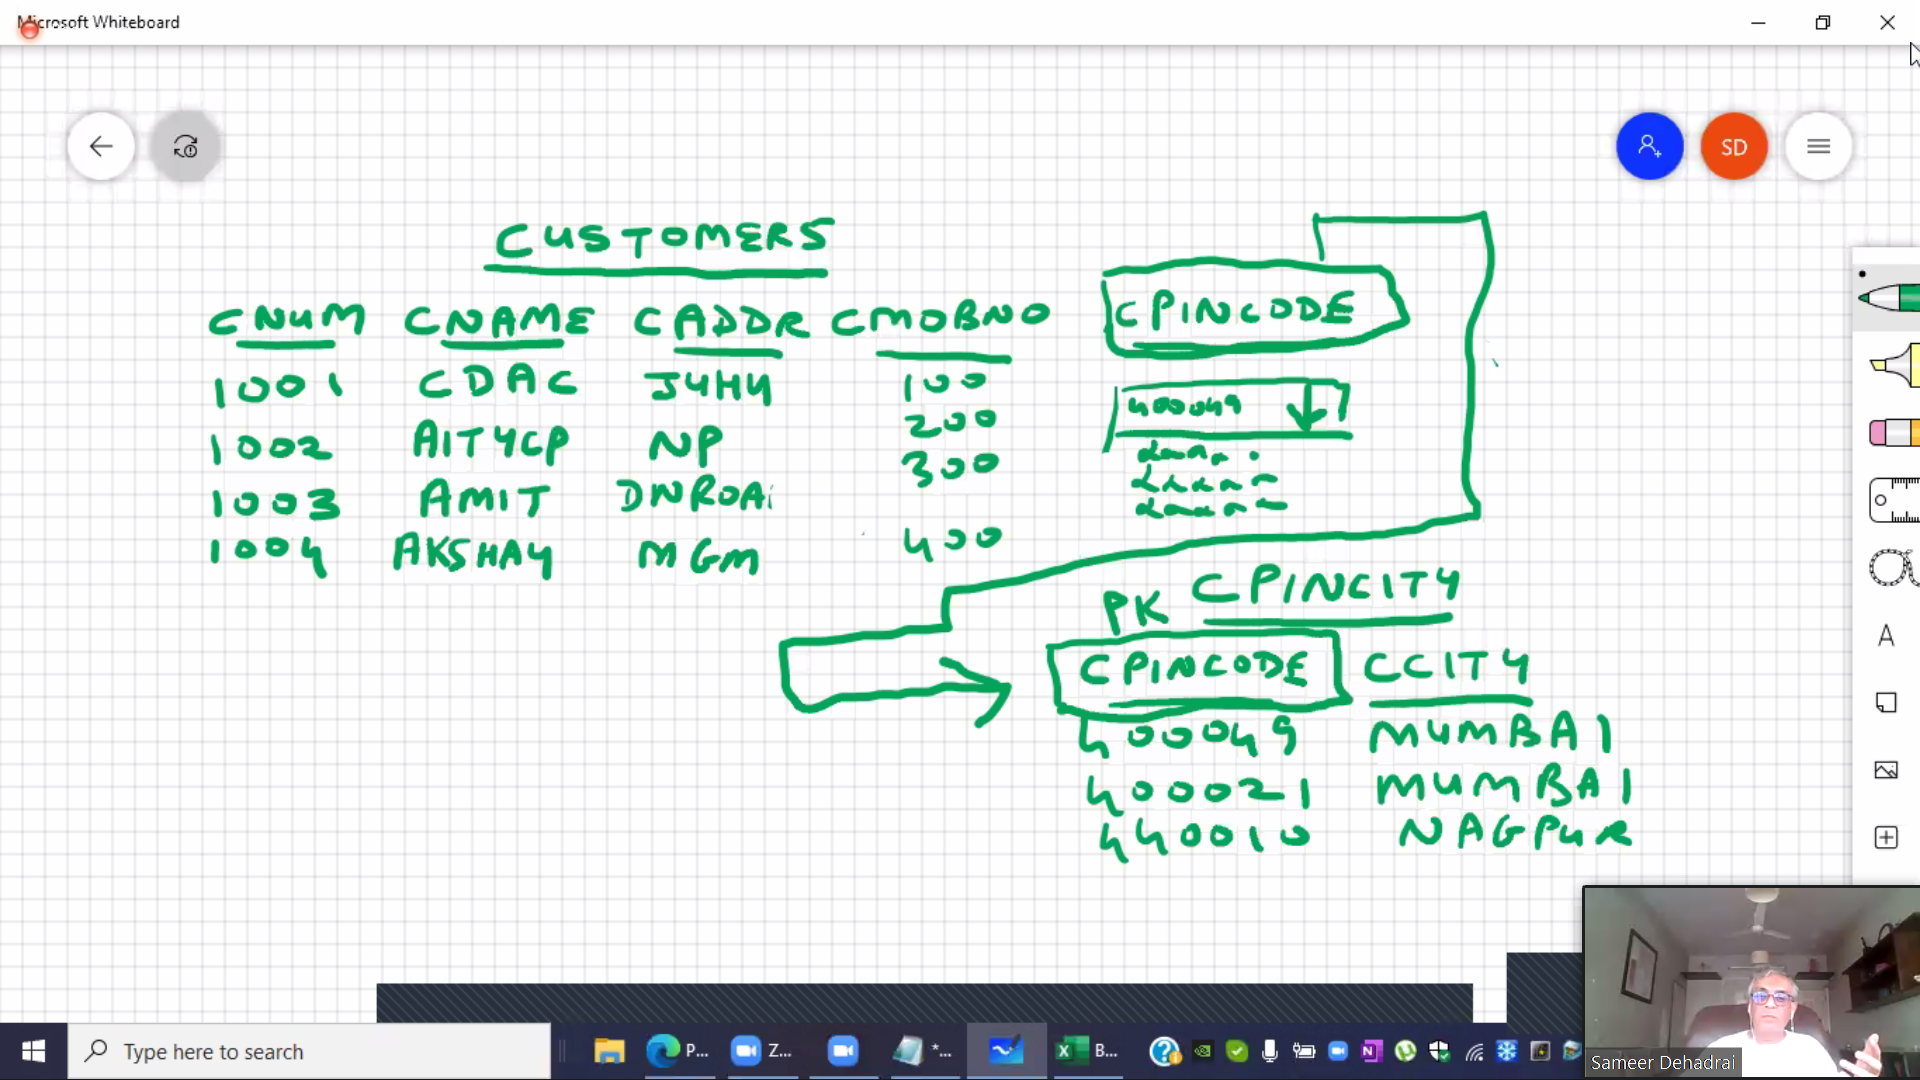 Microsoft Whiteboard
SD
CUSTOMERS
CNUM CNAME CADDR CMOBNO CPINCODE
1001 CDAC J4H4 100 400049
1002 AIT4CP NP 200
1003 AMIT DNROA 300
1004 AKSHAY MGM 400
PK CPINCITY
CPINCODE CCITY
400049 MUMBAI
400021 MUMBAI
440010 NAGPUR
A
Type here to search
P... Z... *... B...
Sameer Dehadrai